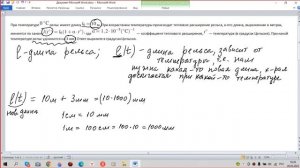 При температуре 0°C рельс имеет длину l₀ = 10 м. При возрастании температуры происходит тепловое расширение рельса, и его длина, выраженная в метрах,
меняется по закону l(t°) = l₀(1 + α · t°), где α = 1,2 · 10⁻⁵(°C)⁻¹ — коэффициент теплового расширения, t° — температура (в градусах Цельсия). При какой
температуре рельс удлинится на 3 мм? Ответ выразите в градусах Цельсия.
l - длина рельса; l(t) - длина рельса, зависит от
температуры, т.е. нам
нужна какая-то новая длина, к-рая
достигается при какой-то
температуре
l(t) = 10м + 3мм = (10·1000)мм
нов длина
1см = 10 мм
1м = 100см = 100·10 = 1000мм